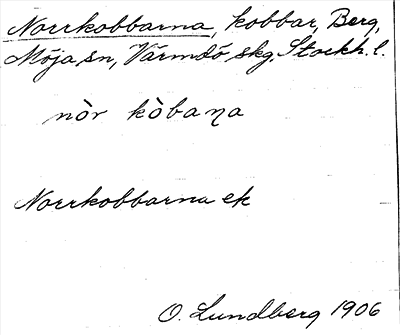 Norrkobbarna, kobbar, Berg,
Möja sn, Värmdö skg, Stockh. l.
nòr kòbaɳa
Norrkobbarna ek
O. Lundberg 1906